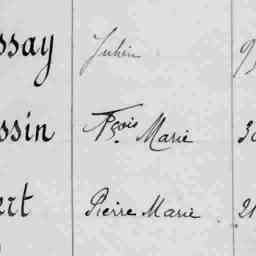 ssay Julien 9
ssin Fçois Marie 30
ert Pierre Marie 21